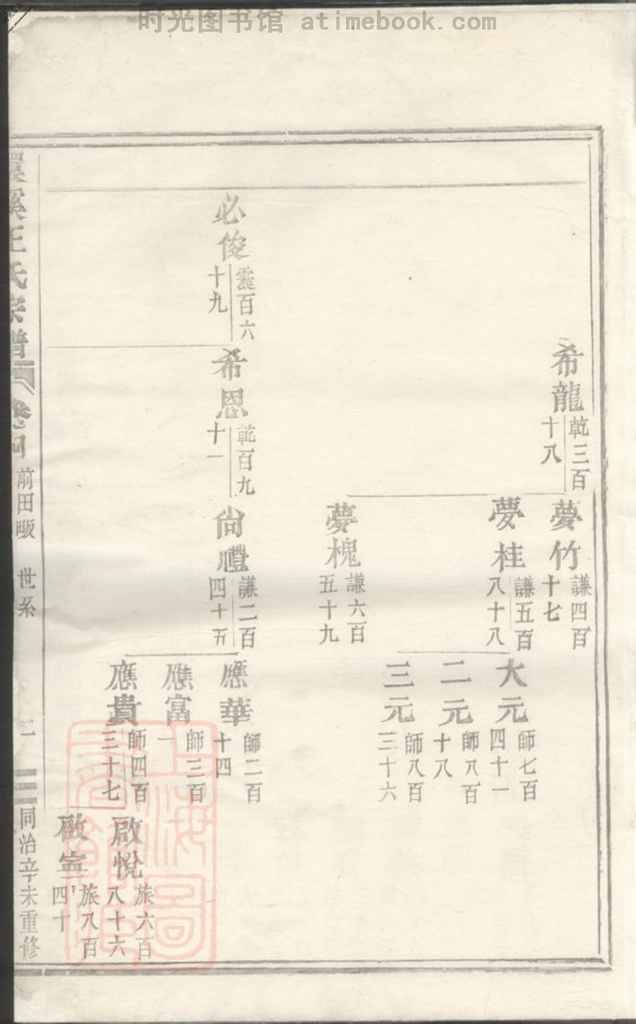 时光图书馆 atimebook.com
希龍
乾三百
十八
夢竹
謙四百
十七
夢桂
謙五百
八十八
大元
師七百
四十一
二元
師八百
十八
三元
師八百
三十六
夢槐
謙六百
五十九
必俊
震百六
十九
希恩
乾百九
十一
尙禮
謙二百
四十五
應華
師二百
十四
應富
師三百
一
應貴
師四百
三十七
啟悅
旅六百
八十六
啟寧
旅八百
四十
溪王氏宗譜 卷四 前田畈 世系 二 同治辛未重修
上海圖